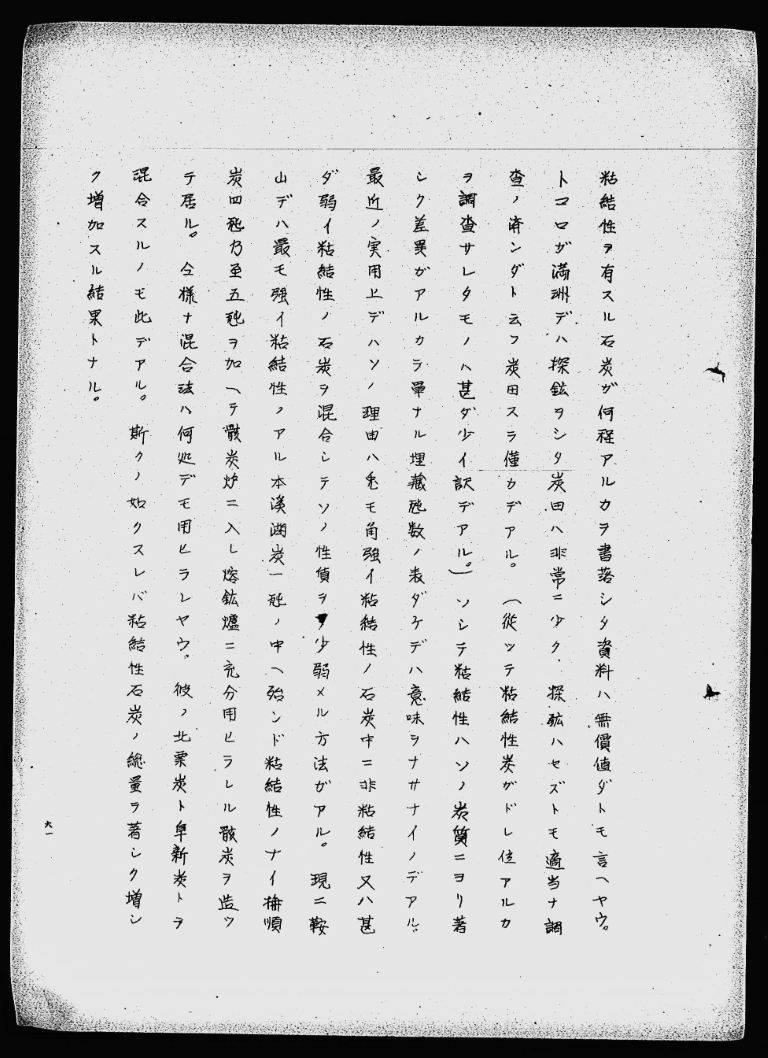 粘結性ヲ有スル石炭ガ何程アルカヲ書落シタ資料ハ無價値ダトモ言ヘヤウ。
トコロガ滿洲デハ探鉱ヲシタ炭田ハ非常ニ少ク、探鉱ハセズトモ適当ナ調
査ノ済ンダト云フ炭田スラ僅カデアル。（從ツテ粘結性炭ガドレ位アルカ
ヲ調査サレタモノハ甚ダ少イ訳デアル。）ソシテ粘結性ハソノ炭質ニヨリ著
シク差異ガアルカラ單ナル埋蔵砘数ノ表ダケデハ意味ヲナサナイノデアル。
最近ノ実用上デハソノ理由ハ兎モ角強イ粘結性ノ石炭中ニ非粘結性又ハ甚
ダ弱イ粘結性ノ石炭ヲ混合シテソノ性質ヲ少弱メル方法ガアル。現ニ鞍
山デハ最モ強イ粘結性ノアル本溪湖炭一砘ノ中ヘ殆ンド粘結性ノナイ撫順
炭四砘乃至五砘ヲ加ヘテ骸炭炉ニ入レ熔鉱爐ニ充分用ヒラレル骸炭ヲ造ツ
テ居ル。仝様ナ混合法ハ何処デモ用ヒラレヤウ。彼ノ北票炭ト阜新炭トヲ
混合スルノモ此デアル。斯クノ如クスレバ粘結性石炭ノ総量ヲ著シク増シ
ク増加スル結果トナル。
六一